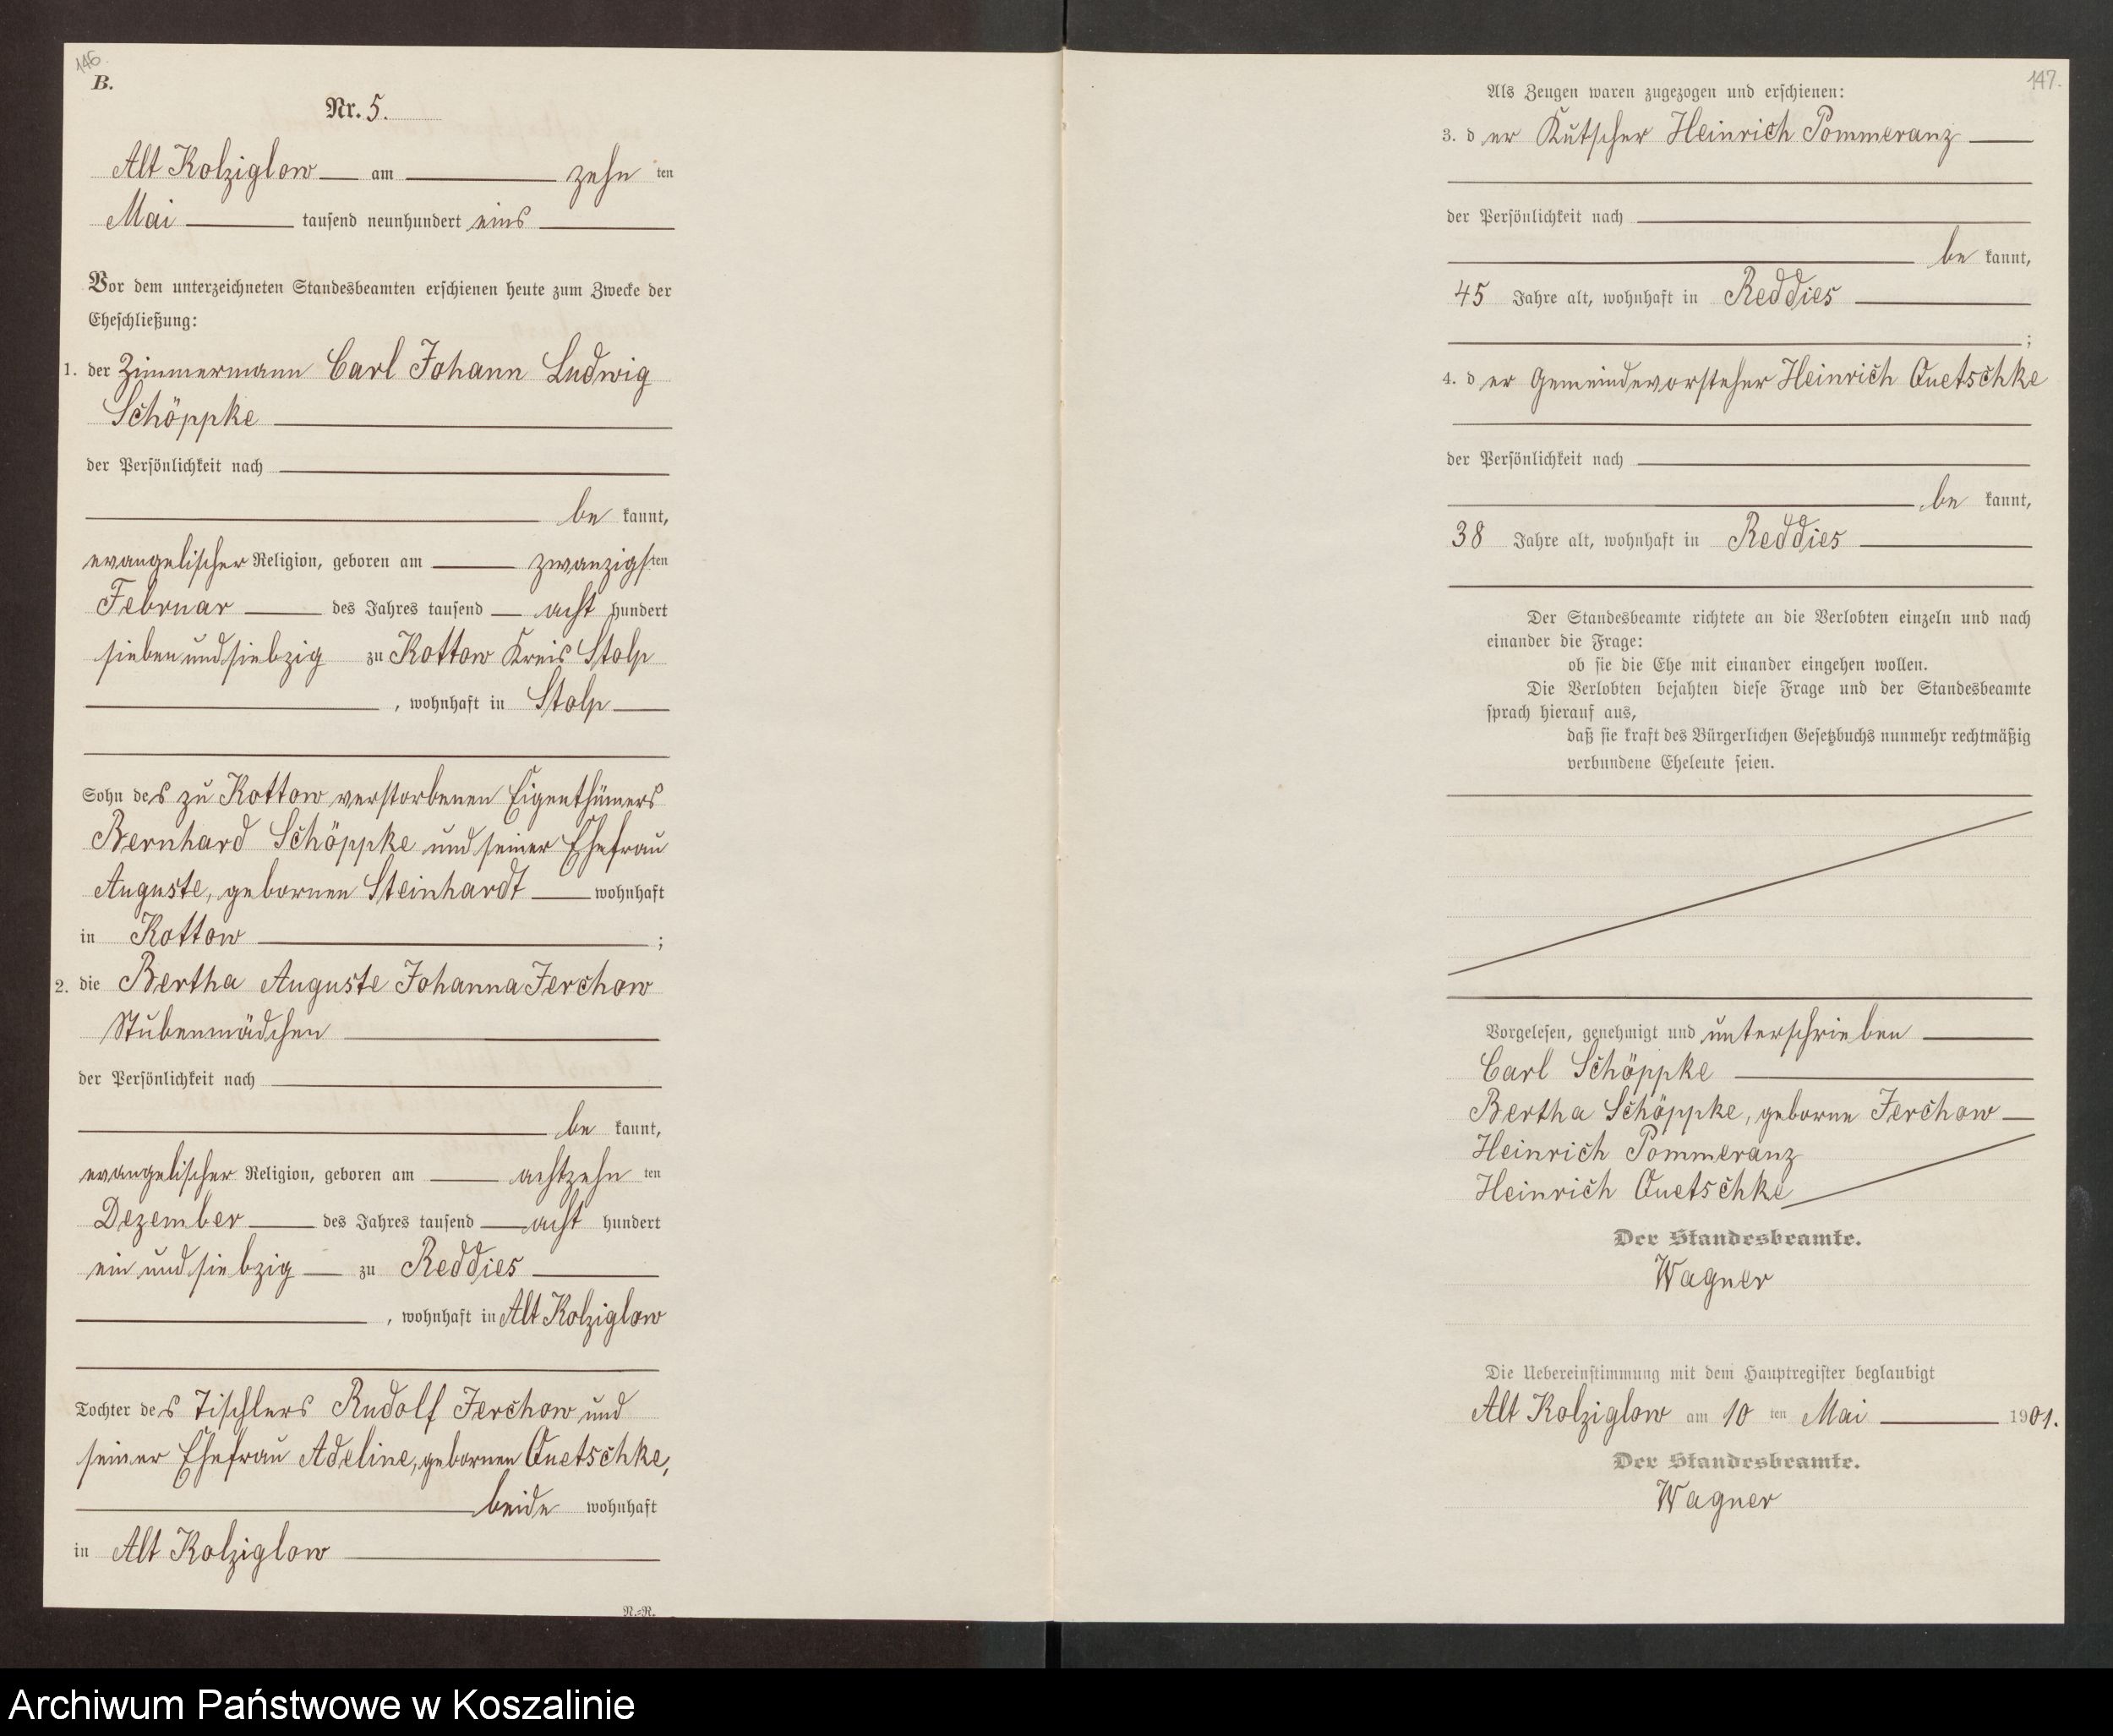 146.
B.
Nr. 5.
Alt Kolziglow am zehn ten
Mai tausend neunhundert eins
Vor dem unterzeichneten Standesbeamten erschienen heute zum Zwecke der
Eheschließung:
1. der Zimmermann Carl Johann Ludwig
Schöppke
der Persönlichkeit nach
be kannt,
evangelischer Religion, geboren am zwanzigsten
Februar des Jahres tausend acht hundert
siebenundsiebzig zu Kottow Kreis Stolp
, wohnhaft in Stolp
Sohn des zu Kottow verstorbenen Eigenthümers
Bernhard Schöppke und seiner Ehefrau
Auguste, gebornen Steinhardt wohnhaft
in Kottow ;
2. die Bertha Auguste Johanna Jerchow
Stubenmädchen
der Persönlichkeit nach
be kannt,
evangelischer Religion, geboren am achtzehn ten
Dezember des Jahres tausend acht hundert
ein und siebzig zu Reddies
, wohnhaft in Alt Kolziglow
Tochter des Tischlers Rudolf Jerchow und
seiner Ehefrau Adeline, gebornen Quetschke,
beide wohnhaft
in Alt Kolziglow
N.=R.
147.
Als Zeugen waren zugezogen und erschienen:
3. der Kutscher Heinrich Pommeranz
der Persönlichkeit nach
be kannt,
45 Jahre alt, wohnhaft in Reddies
;
4. der Gemeindevorsteher Heinrich Quetschke
der Persönlichkeit nach
be kannt,
38 Jahre alt, wohnhaft in Reddies
Der Standesbeamte richtete an die Verlobten einzeln und nach
einander die Frage:
ob sie die Ehe mit einander eingehen wollen.
Die Verlobten bejahten diese Frage und der Standesbeamte
sprach hierauf aus,
daß sie kraft des Bürgerlichen Gesetzbuchs nunmehr rechtmäßig
verbundene Eheleute seien.
Vorgelesen, genehmigt und unterschrieben
Carl Schöppke
Bertha Schöppke, geborne Jerchow
Heinrich Pommeranz
Heinrich Quetschke
Der Standesbeamte.
Wagner
Die Uebereinstimmung mit dem Hauptregister beglaubigt
Alt Kolziglow am 10 ten Mai 1901.
Der Standesbeamte.
Wagner
Archiwum Państwowe w Koszalinie